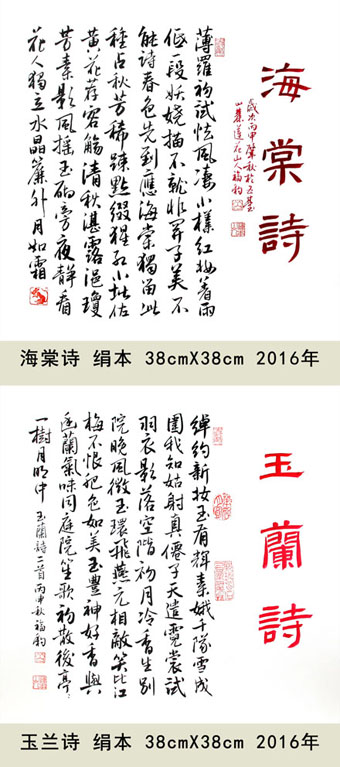 海棠詩
歲次丙申肇秋於
山麓蓮花山人福鈞
薄羅初試怯風凄小樣紅妝著雨
低一段妖嬈描不就非関子美不
能詩春色先到應海棠獨留此
種占秋芳稀疎點綴猩紅小堪佐
黃花荐客觴清秋湛露浥瓊
芳素影風摇玉砌旁夜靜看
花人獨立水晶簾外月如霜
海棠诗 绢本 38cmX38cm 2016年
玉蘭詩
綽約新妝玉有輝素娥千隊雪成
圍我知姑射真僊子天遣霓裳試
羽衣影落空階初月冷香生別
院晚風微玉環飛燕元相敵笑比江
梅不恨肥色如美玉豐神好香與
幽蘭氣味同庭院笙歌初散後亭亭
一樹月明中 玉蘭詩二首丙申秋福鈞
玉兰诗 绢本 38cmX38cm 2016年